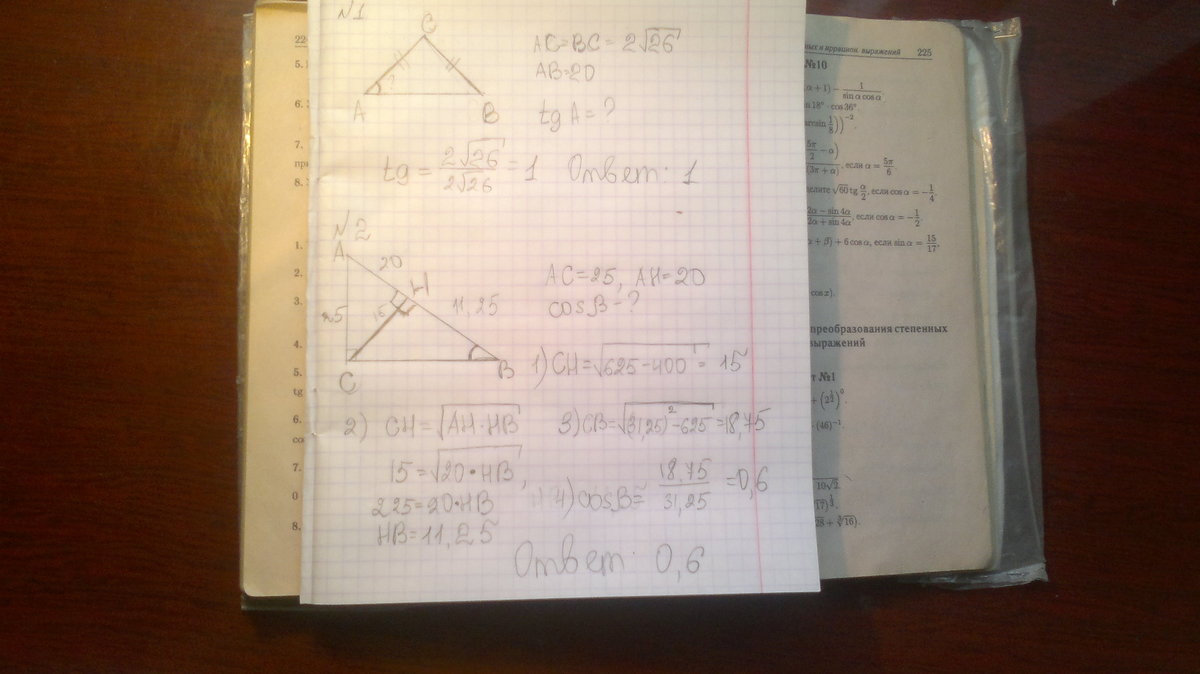 №1
C
AC=BC=2√26
AB=20
?
A
B
tg A=?
tg = 2√26/2√26 = 1 Ответ: 1
№2
A
20
H
11,25
25
15
C
B
AC=25, AH=20
cosB-?
1) CH=√625-400 = 15
2) CH=√AH·HB
3) CB=√(31,25)²-625=18,75
15=√20·HB
225=20·HB
HB=11,25
4) cosB= 18,75/31,25 =0,6
Ответ: 0,6
22
5.
6.
7.
при
8.
1.
2.
3.
4.
5.
tg
6.
со
7.
8.
выражений 225
№10
α+1) - 1/sin α cos α.
18° · cos 36°.
arcsin 1/8))⁻².
5π/2 - α)
(3π + α), если α = 5π/6.
делите √60 tg α/2, если cos α = -1/4.
2α - sin 4α/2α + sin 4α, если cos α = -1/2.
+ β) + 6 cos α, если sin α = 15/17.
cos x).
преобразования степенных
выражений
№1
· (46)⁻¹.